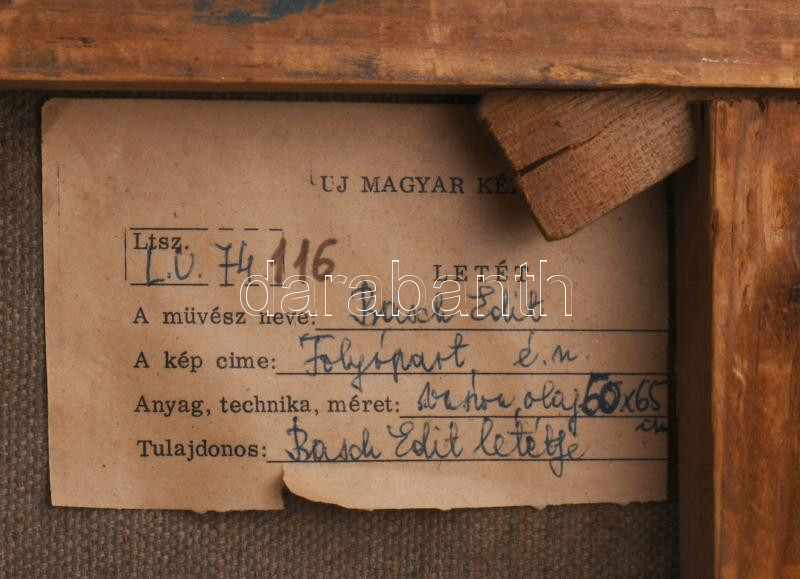 UJ MAGYAR KÉ
Ltsz.
L.U. 74 116
LETÉT
darabanth
A müvész neve: Basch Edit
A kép cime: Folyópart, é.n.
Anyag, technika, méret: vászon, olaj 60x65 cm
Tulajdonos: Basch Edit letétje